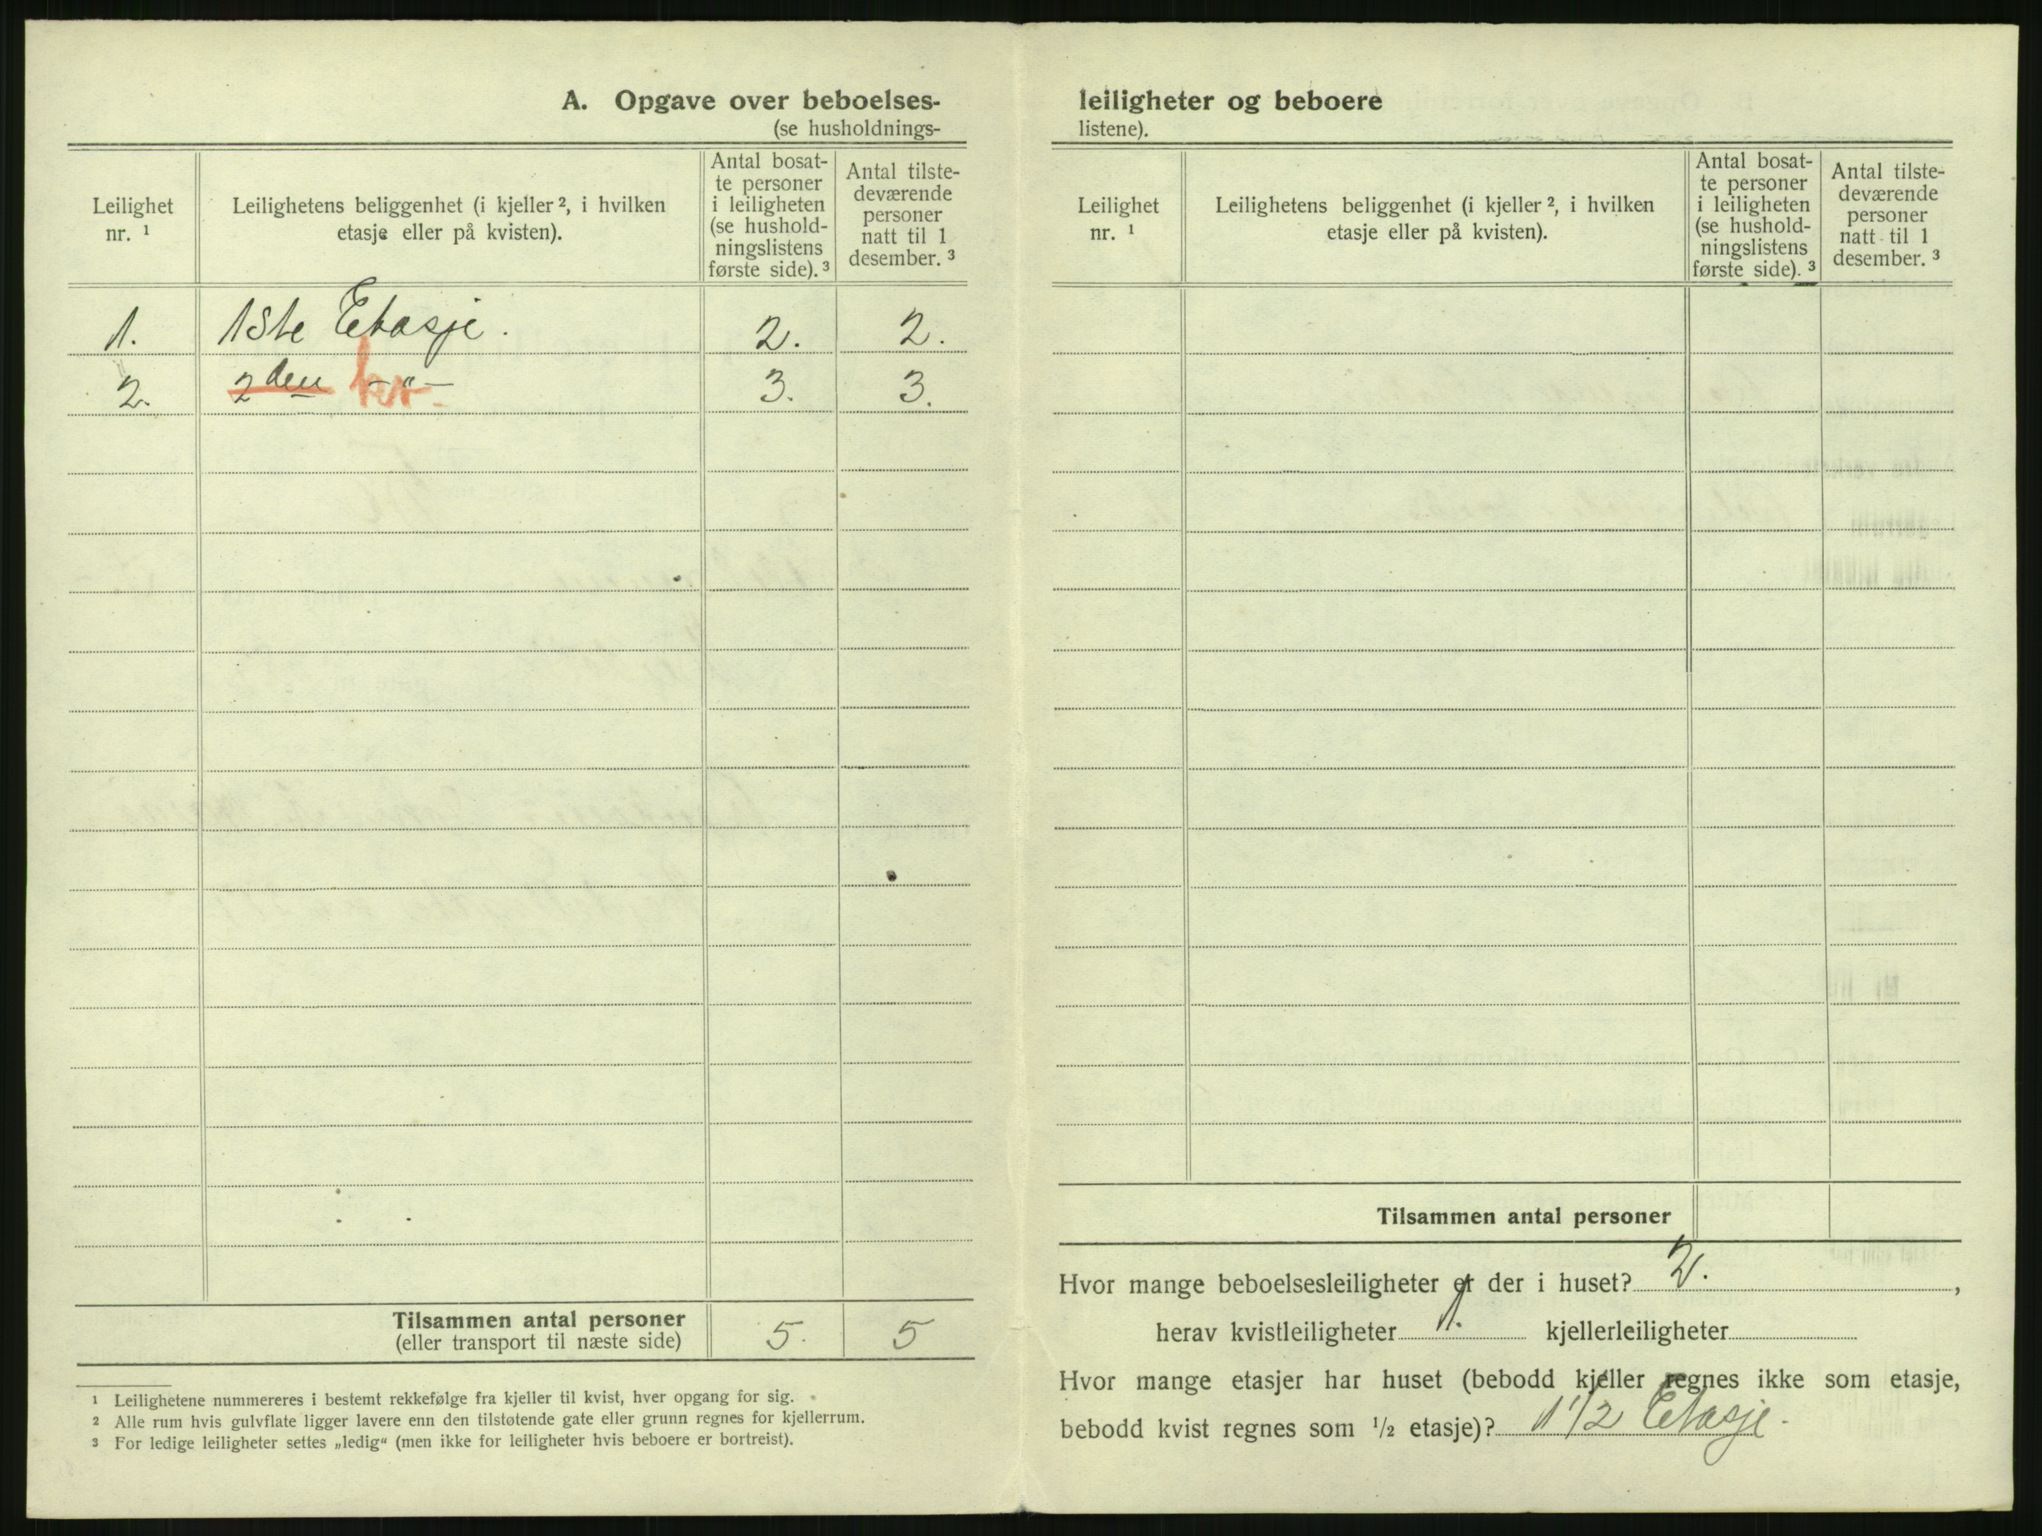 A. Opgave over beboelses-
(se husholdnings-
Leilighet nr. ¹
Leilighetens beliggenhet (i kjeller ², i hvilken etasje eller på kvisten).
Antal bosat-
te personer
i leiligheten
(se hushold-
ningslistens
første side). ³
Antal tilste-
deværende
personer
natt til 1
desember. ³
1. 1ste Etasje. 2. 2.
2. 2den –"– kv. 3. 3.
Tilsammen antal personer 5. 5
(eller transport til næste side)
¹ Leilighetene nummereres i bestemt rekkefølge fra kjeller til kvist, hver opgang for sig.
² Alle rum hvis gulvflate ligger lavere enn den tilstøtende gate eller grunn regnes for kjellerrum.
³ For ledige leiligheter settes „ledig“ (men ikke for leiligheter hvis beboere er bortreist).
leiligheter og beboere
listene).
Leilighet nr. ¹
Leilighetens beliggenhet (i kjeller ², i hvilken etasje eller på kvisten).
Antal bosat-
te personer
i leiligheten
(se hushold-
ningslistens
første side). ³
Antal tilste-
deværende
personer
natt til 1
desember. ³
Tilsammen antal personer
Hvor mange beboelsesleiligheter er der i huset? 2.,
herav kvistleiligheter 1. kjellerleiligheter
Hvor mange etasjer har huset (bebodd kjeller regnes ikke som etasje,
bebodd kvist regnes som ½ etasje)? 1 1/2 Etasje.